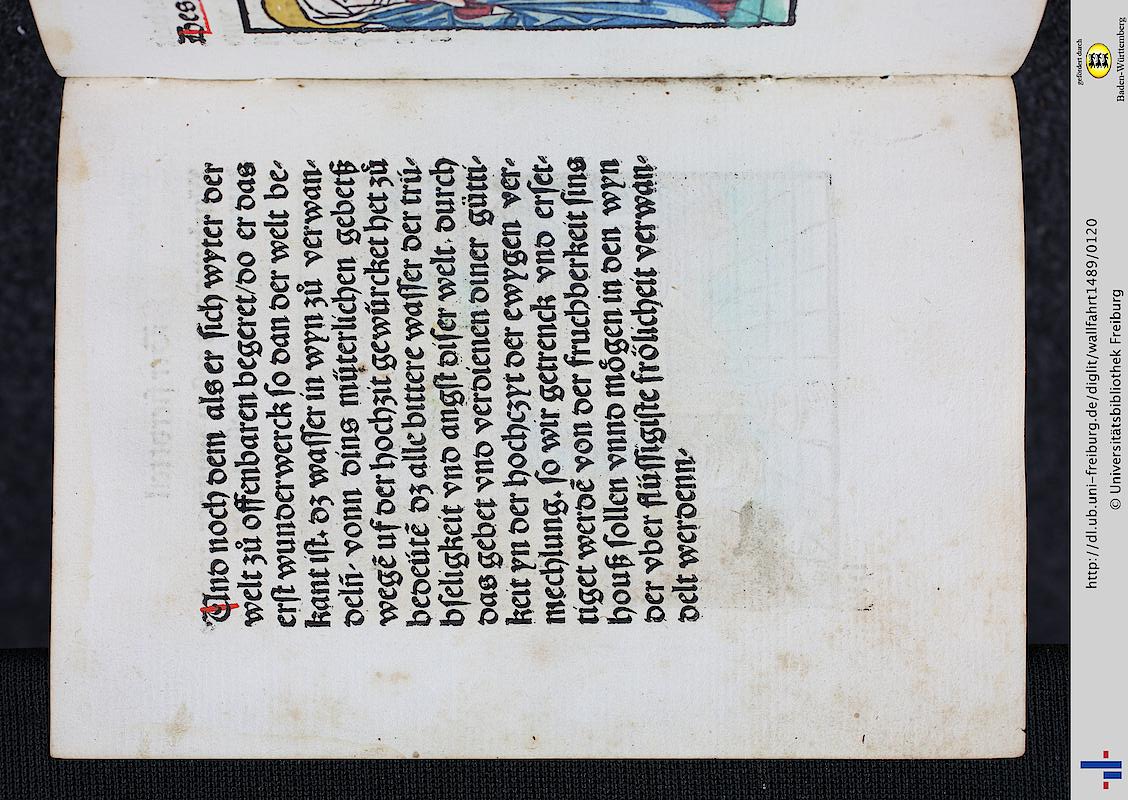 Und noch dem als er sich wyter der
welt zů offenbaren begeret/do er das
erst wunderwerck so dan der welt be⸗
kant ist. dz wasser in wyn zů verwan⸗
deln⸗ vonn dins müterlichen gebetß
wegē uf der hochzit gewürcket het zů
bedeutē dz alle bittere wasser der trü⸗
bseligkeit vnd angst diser welt. durch
das gebet vnd verdienen diner gütti⸗
keit yn der hochczyt der ewygen ver⸗
mechlung. so wir getrenck vnd erset⸗
tiget werdē von der fruchberkeit sins
houß sollen vnnd mögen in den wyn
der vber flüssigiste frölicheit verwan⸗
delt werdenn⸗
Wes
gefördert durch
Baden-Württemberg
http://dl.ub.uni-freiburg.de/diglit/wallfahrt1489/0120
© Universitätsbibliothek Freiburg